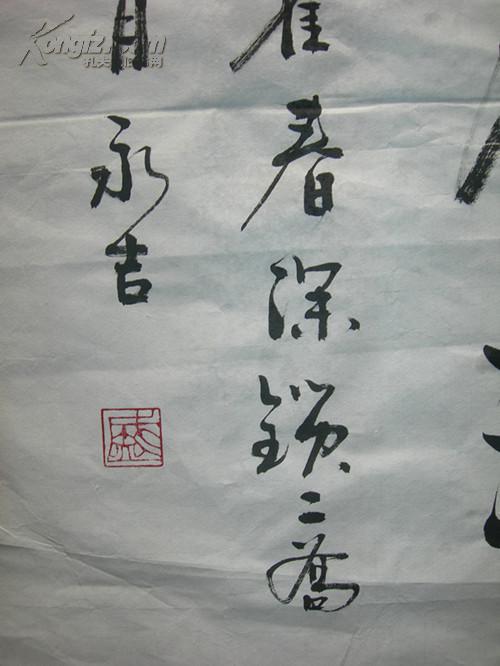 雀春深鎖二喬
月永吉
Kongfz.com
孔夫子旧书网